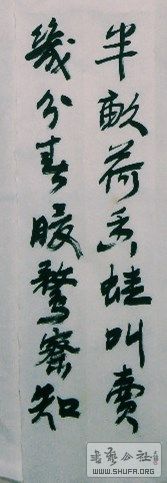 半畝荷香蛙叫賣
幾分春暖鶩察知
書艺公社
WWW.SHUFA.ORG